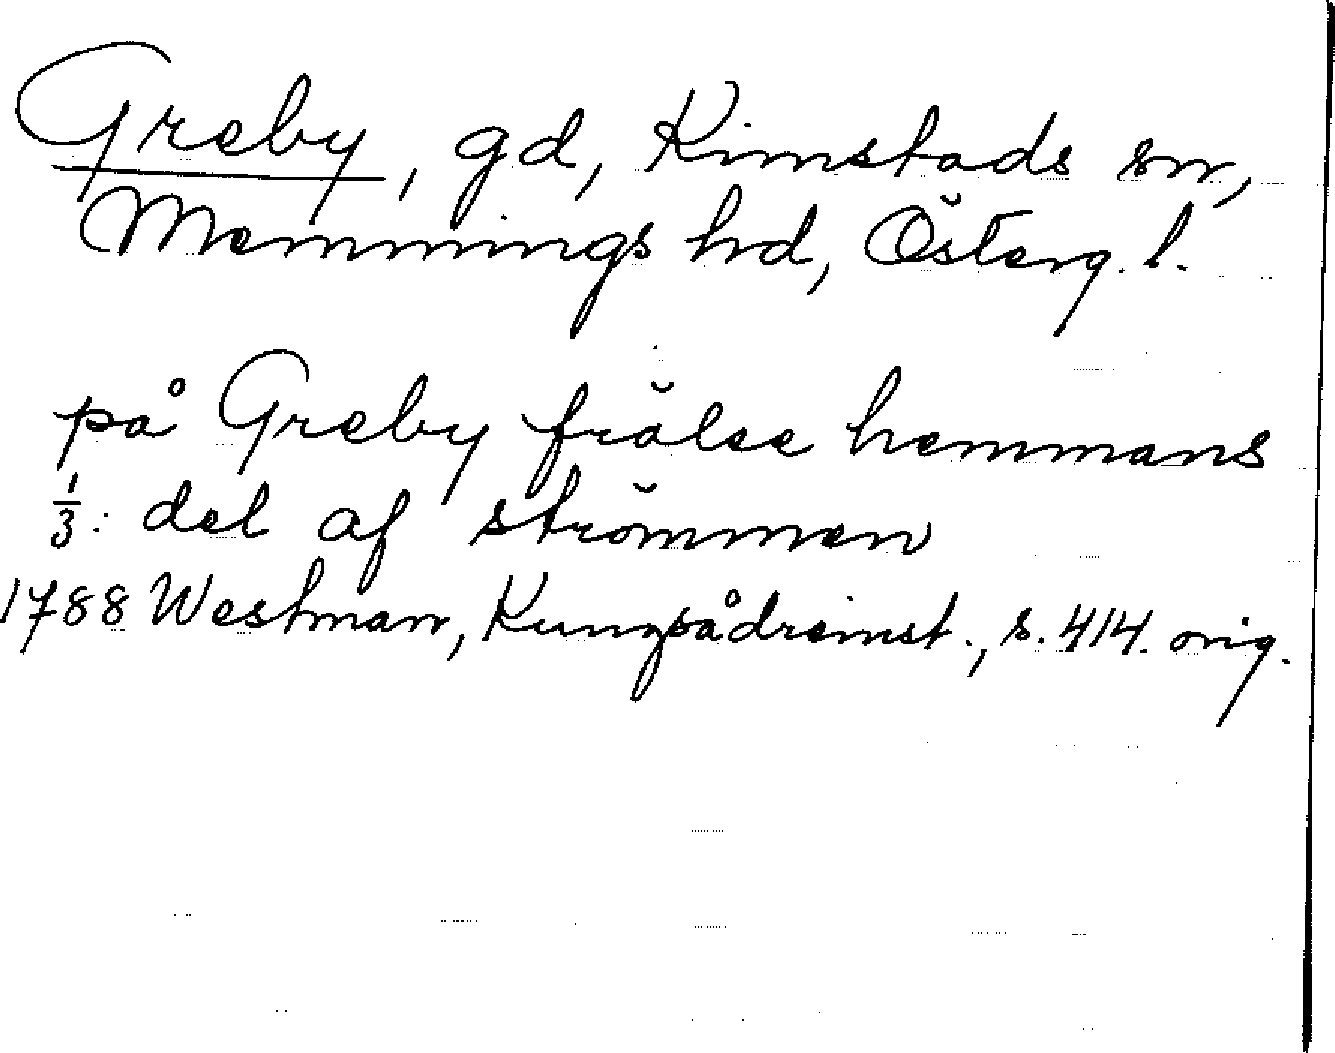 Greby, gd, Kimstads sn,
Memmings hd, Österg. l.
på Greby frälse hemmans
1/3: del af strömmen
1788 Westman, Kungsådreinst., s. 414. orig.